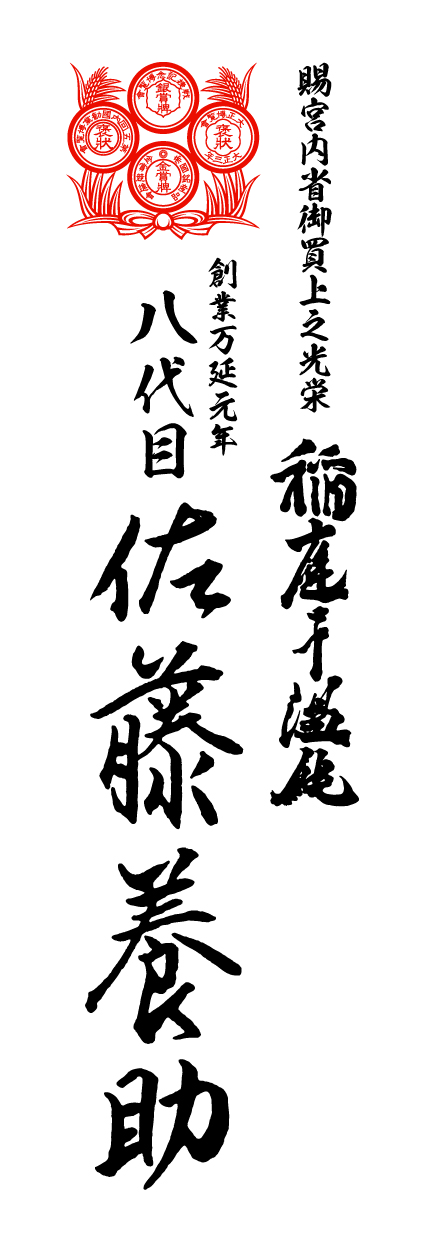 賜宮内省御買上之光栄
稲庭干温飩
創業万延元年
八代目
佐藤養助
銀賞牌
褒状
褒状
金賞牌